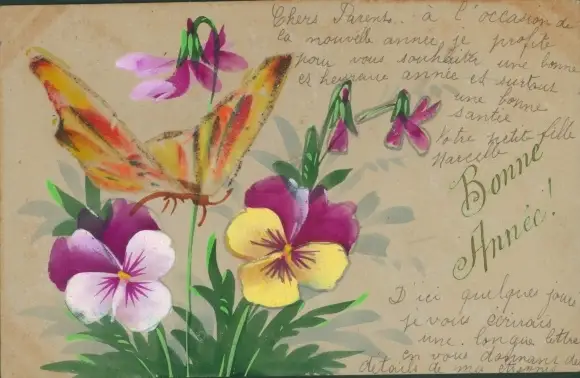 Chers Parents.. à l'occasion de
la nouvelle année je profite
pour vous souhaiter une bonne
et heureuse année et surtout
une bonne
santée
Votre petite fille
Marcelle
Bonne
Année!
D'ici quelques jours
je vous écrirais
une longue lettre
en vous donnant des
détails de ma